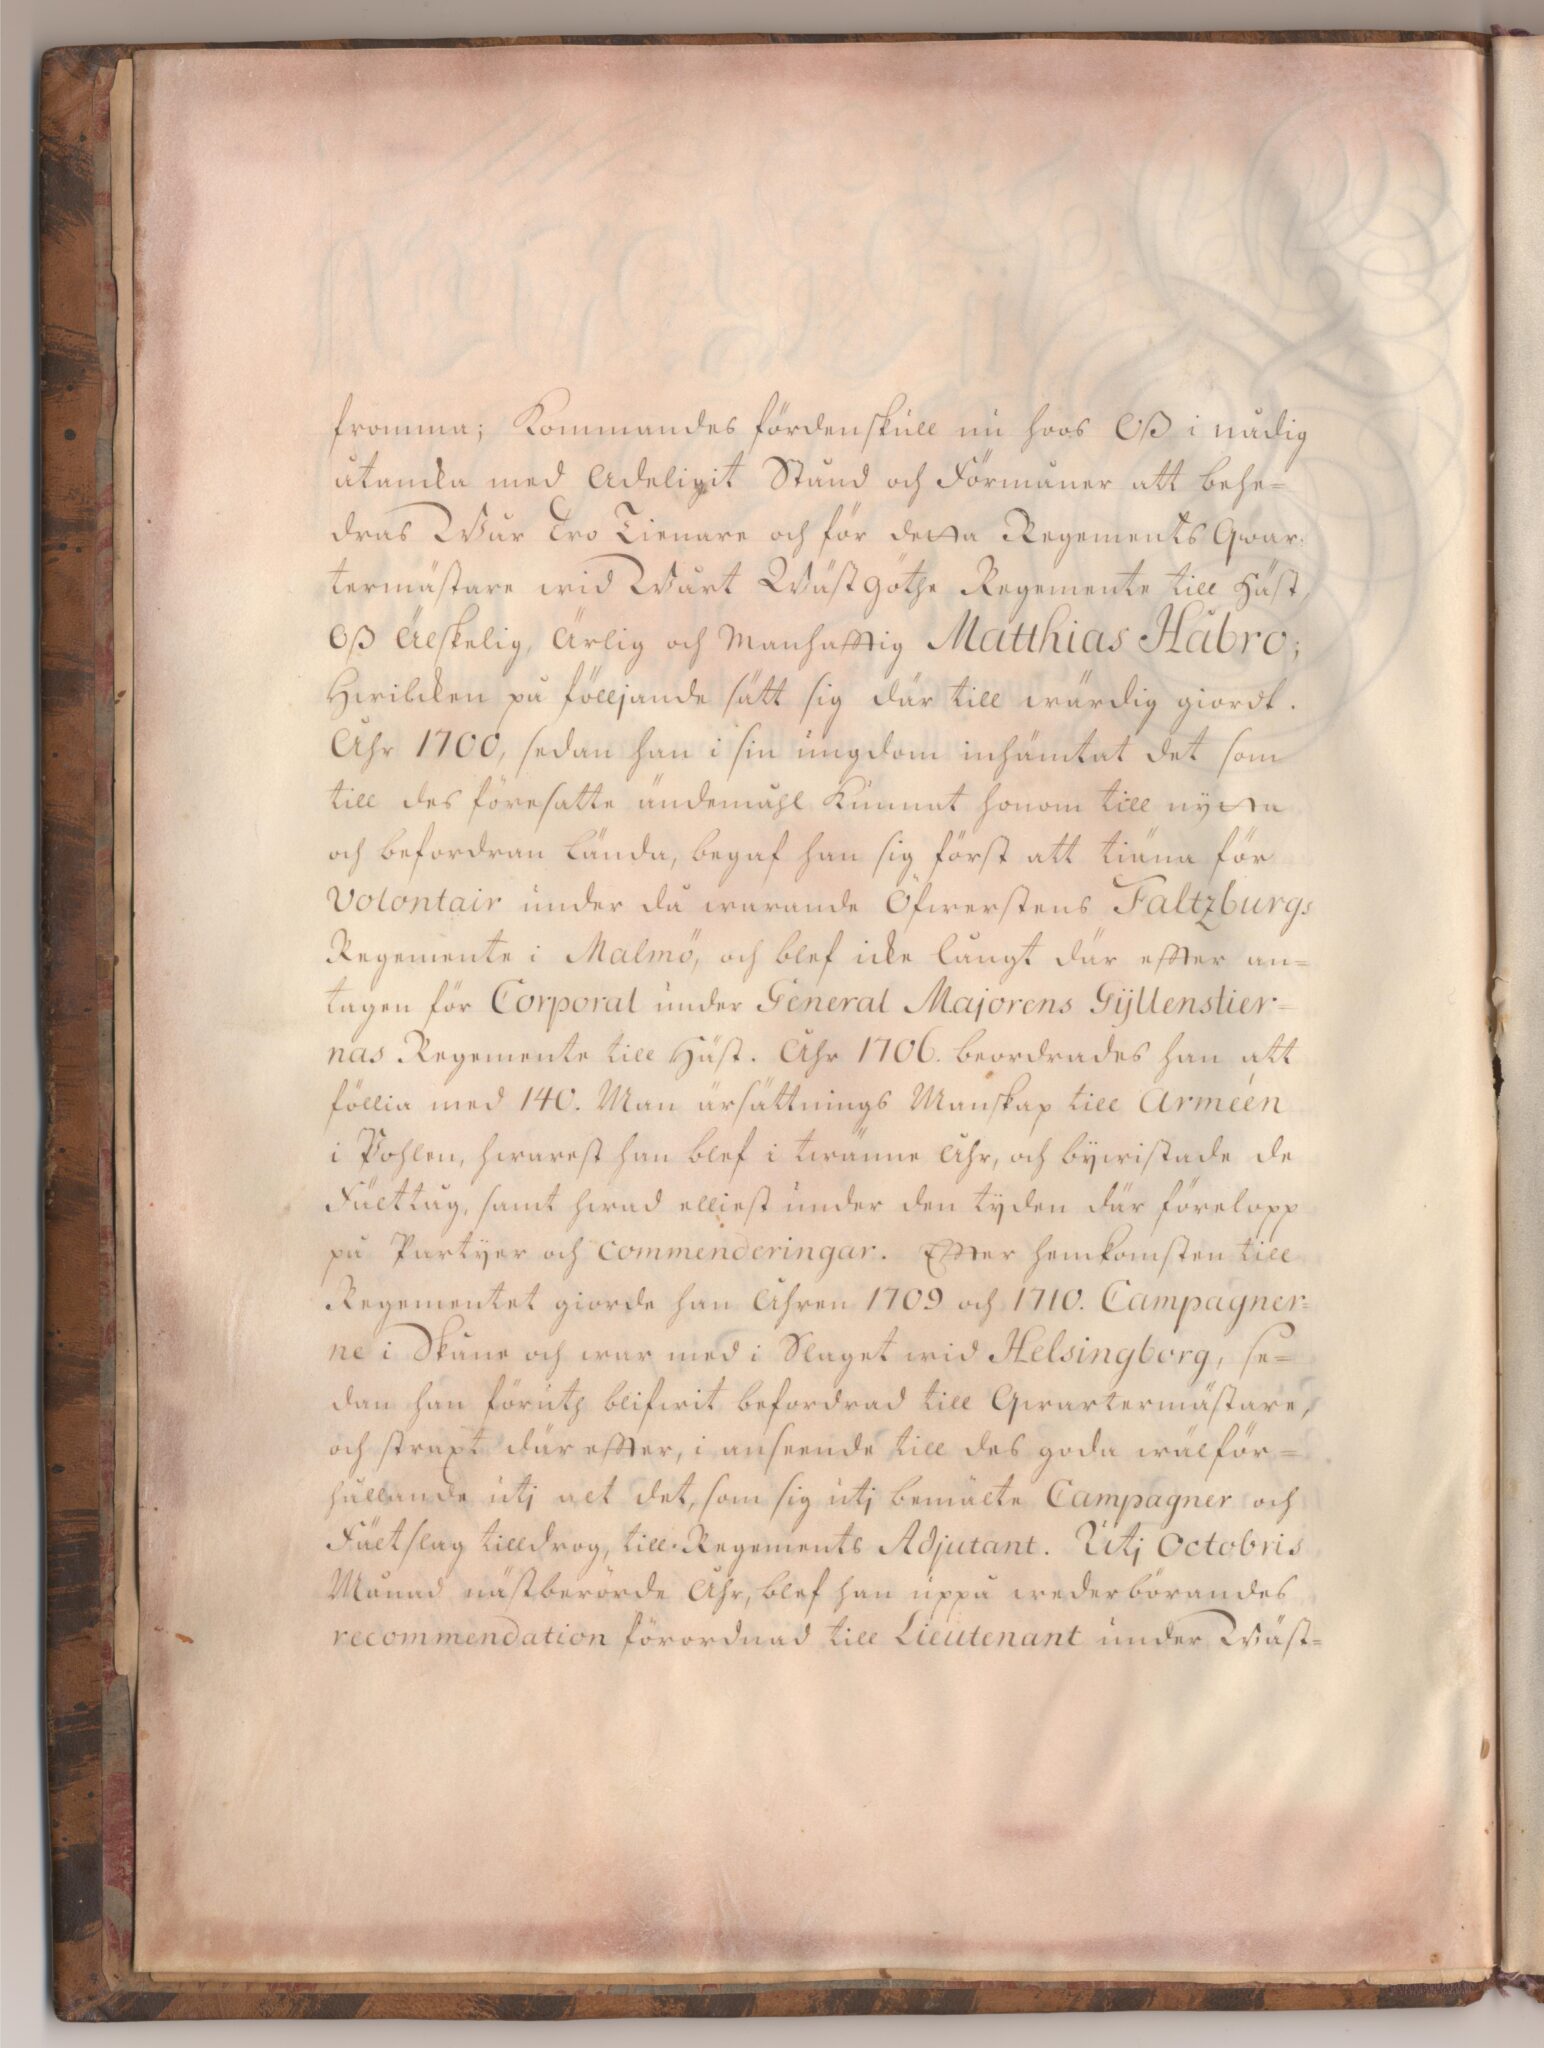 fromma; Kommandes fördenskull nu hoos Oß i nådig
åtancka med Adeligit Stånd och Förmåner att behe-
dras Wår Tro Tienare och för detta Regements Qwar-
termästare wid Wårt Wästgöthe Regemente till Häst,
Oß Älskelig, Ärlig och Manhafftig Matthias Håbro;
Hwilcken på följjande sätt sig där till wärdig giordt.
Åhr 1700, sedan han i sin ungdom inhämtat det som
till des föresatte ändemåhl kunnat honom till nytta
och befordran lända, begaf han sig först att tiäna för
Volontair under då warande Öfwerstens Faltzburgs
Regemente i Malmö, och blef icke långt där effter an-
tagen för Corporal under General Majorens Gÿllenstier-
nas Regemente till Häst. Åhr 1706. beordrades han att
föllia med 140. Man ärsättnings Manskap till Arméen
i Pohlen, hwarest han blef i twänne Åhr, och bywistade de
Fälttåg, samt hwad elliest under den tyden där förelopp
på Partyer och Commenderingar. Effter hemkomsten till
Regementet giorde han Åhren 1709 och 1710. Campagner-
ne i Skåne och war med i Slaget wid Helsingborg, se-
dan han föruth blifwit befordrad till Qwartermästare,
och straxt där effter, i anseende till des goda wälför-
hållande utj alt det, som sig utj bemälte Campagner och
Fältslag tilldrog, till Regements Adjutant. Utj Octobris
Månad nästberörde Åhr, blef han uppå wederbörandes
recommendation förordnad till Lieutenant under Wäst-